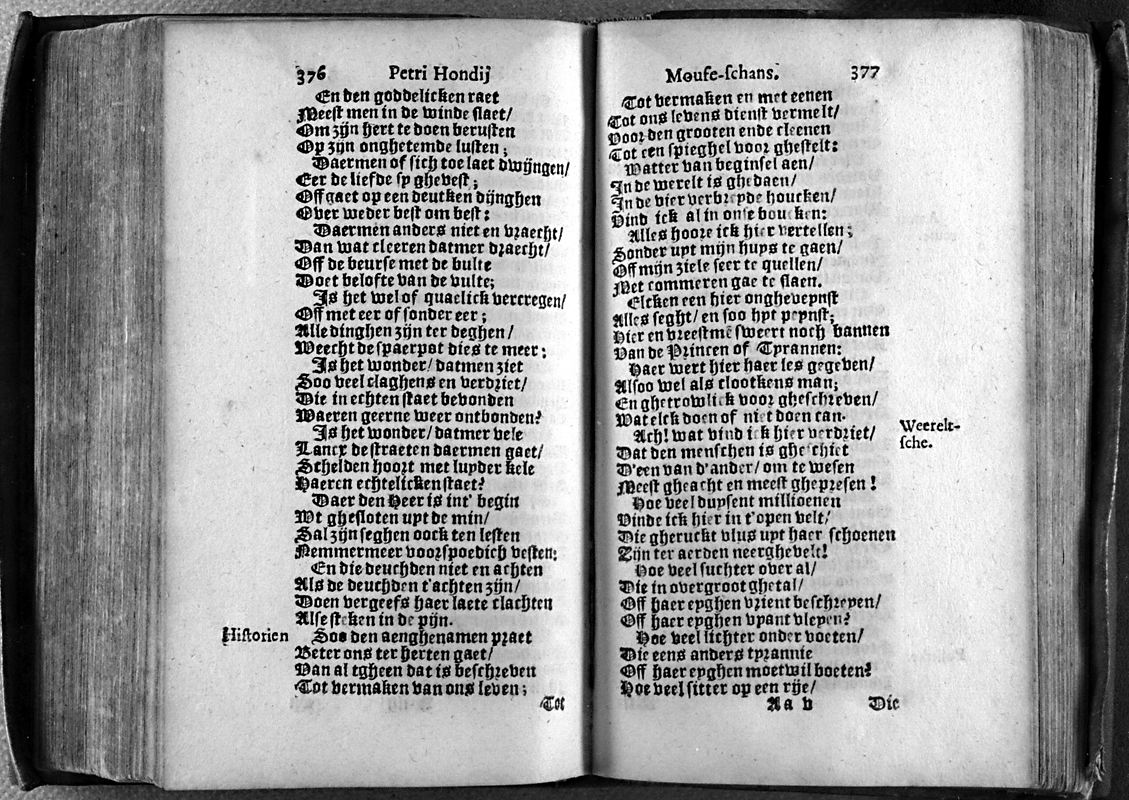 376 Petri Hondij
En den goddelicken raet
Meest men in de winde slaet/
Om zijn hert te doen berusten
Op zijn onghetemde lusten;
Daermen of sich toe laet dwijngen/
Eer de liefde sy ghevest;
Off gaet op een deutken dijnghen
Over weder best om best:
Daermen anders niet en vraecht/
Dan wat cleeren datmer draecht/
Off de beurse met de bulte
Doet belofte van de vulte;
Is het wel of quaelick vercregen/
Off met eer of sonder eer;
Alle dinghen zijn ter deghen/
Weecht de spaerpot dies te meer:
Is het wonder/ datmen ziet
Soo veel claghens en verdriet/
Die in echten staet bevonden
Waeren geerne weer ontbonden?
Is het wonder/ datmer vele
Lancx de straeten daermen gaet/
Schelden hoort met luyder kele
Haeren echtelicken staet?
Daer den Heer is int' begin
Wt ghesloten upt de min/
Sal zijn seghen oock ten lesten
Nemmermeer voorspoedich vesten:
En die deuchden niet en achten
Als de deuchden t'achten zijn/
Doen vergeefs haer laete clachten
Alse steken in de pijn.
Historien
Soo den aenghenamen praet
Beter ons ter herten gaet/
Van al tgheen dat is beschreven
Tot vermaken van ons leven;
Tot
Mouse-schans. 377
Tot vermaken en met eenen
Tot ons levens dienst vermelt/
Voor den grooten ende cleenen
Tot een spieghel voor ghestelt:
Watter van beginsel aen/
In de werelt is ghedaen/
In de vier verbreyde houcken/
Vind ick al in onse boucken:
Alles hoore ick hier vertellen;
Sonder upt mijn huys te gaen/
Off mijn ziele seer te quellen/
Met commeren gae te slaen.
Elcken een hier onghevepnst
Alles seght/ en soo hyt peynst;
Hier en vreestmē sweert noch bannen
Van de Princen of Tyrannen:
Haer wert hier haer les gegeven/
Alsoo wel als clootkens man;
En ghetrowlick voor gheschreven/
Wat elck doen of niet doen can.
Weerelt-
sche.
Ach! wat vind ick hier verdriet/
Dat den menschen is gheschiet
D'een van d'ander/ om te wesen
Meest gheacht en meest ghepresen!
Hoe veel duysent millioenen
Vinde ick hier in t'open velt/
Die gheruckt vlus upt haer schoenen
Zijn ter aerden neerghevelt!
Hoe veel suchter over al/
Die in overgroot ghetal/
Off haer eyghen vrient beschreyen/
Off haer eyghen vyant vleyen?
Hoe veel lichter onder voeten/
Die eens anders tyrannie
Off haer eyghen moetwil boeten?
Hoe veel sitter op een rije/
Aa v Die